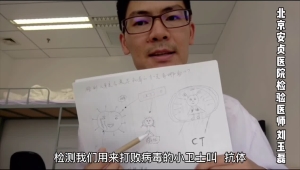 北京安贞医院检验医师刘玉磊
CT
检测我们用来打败病毒的小卫士叫 抗体